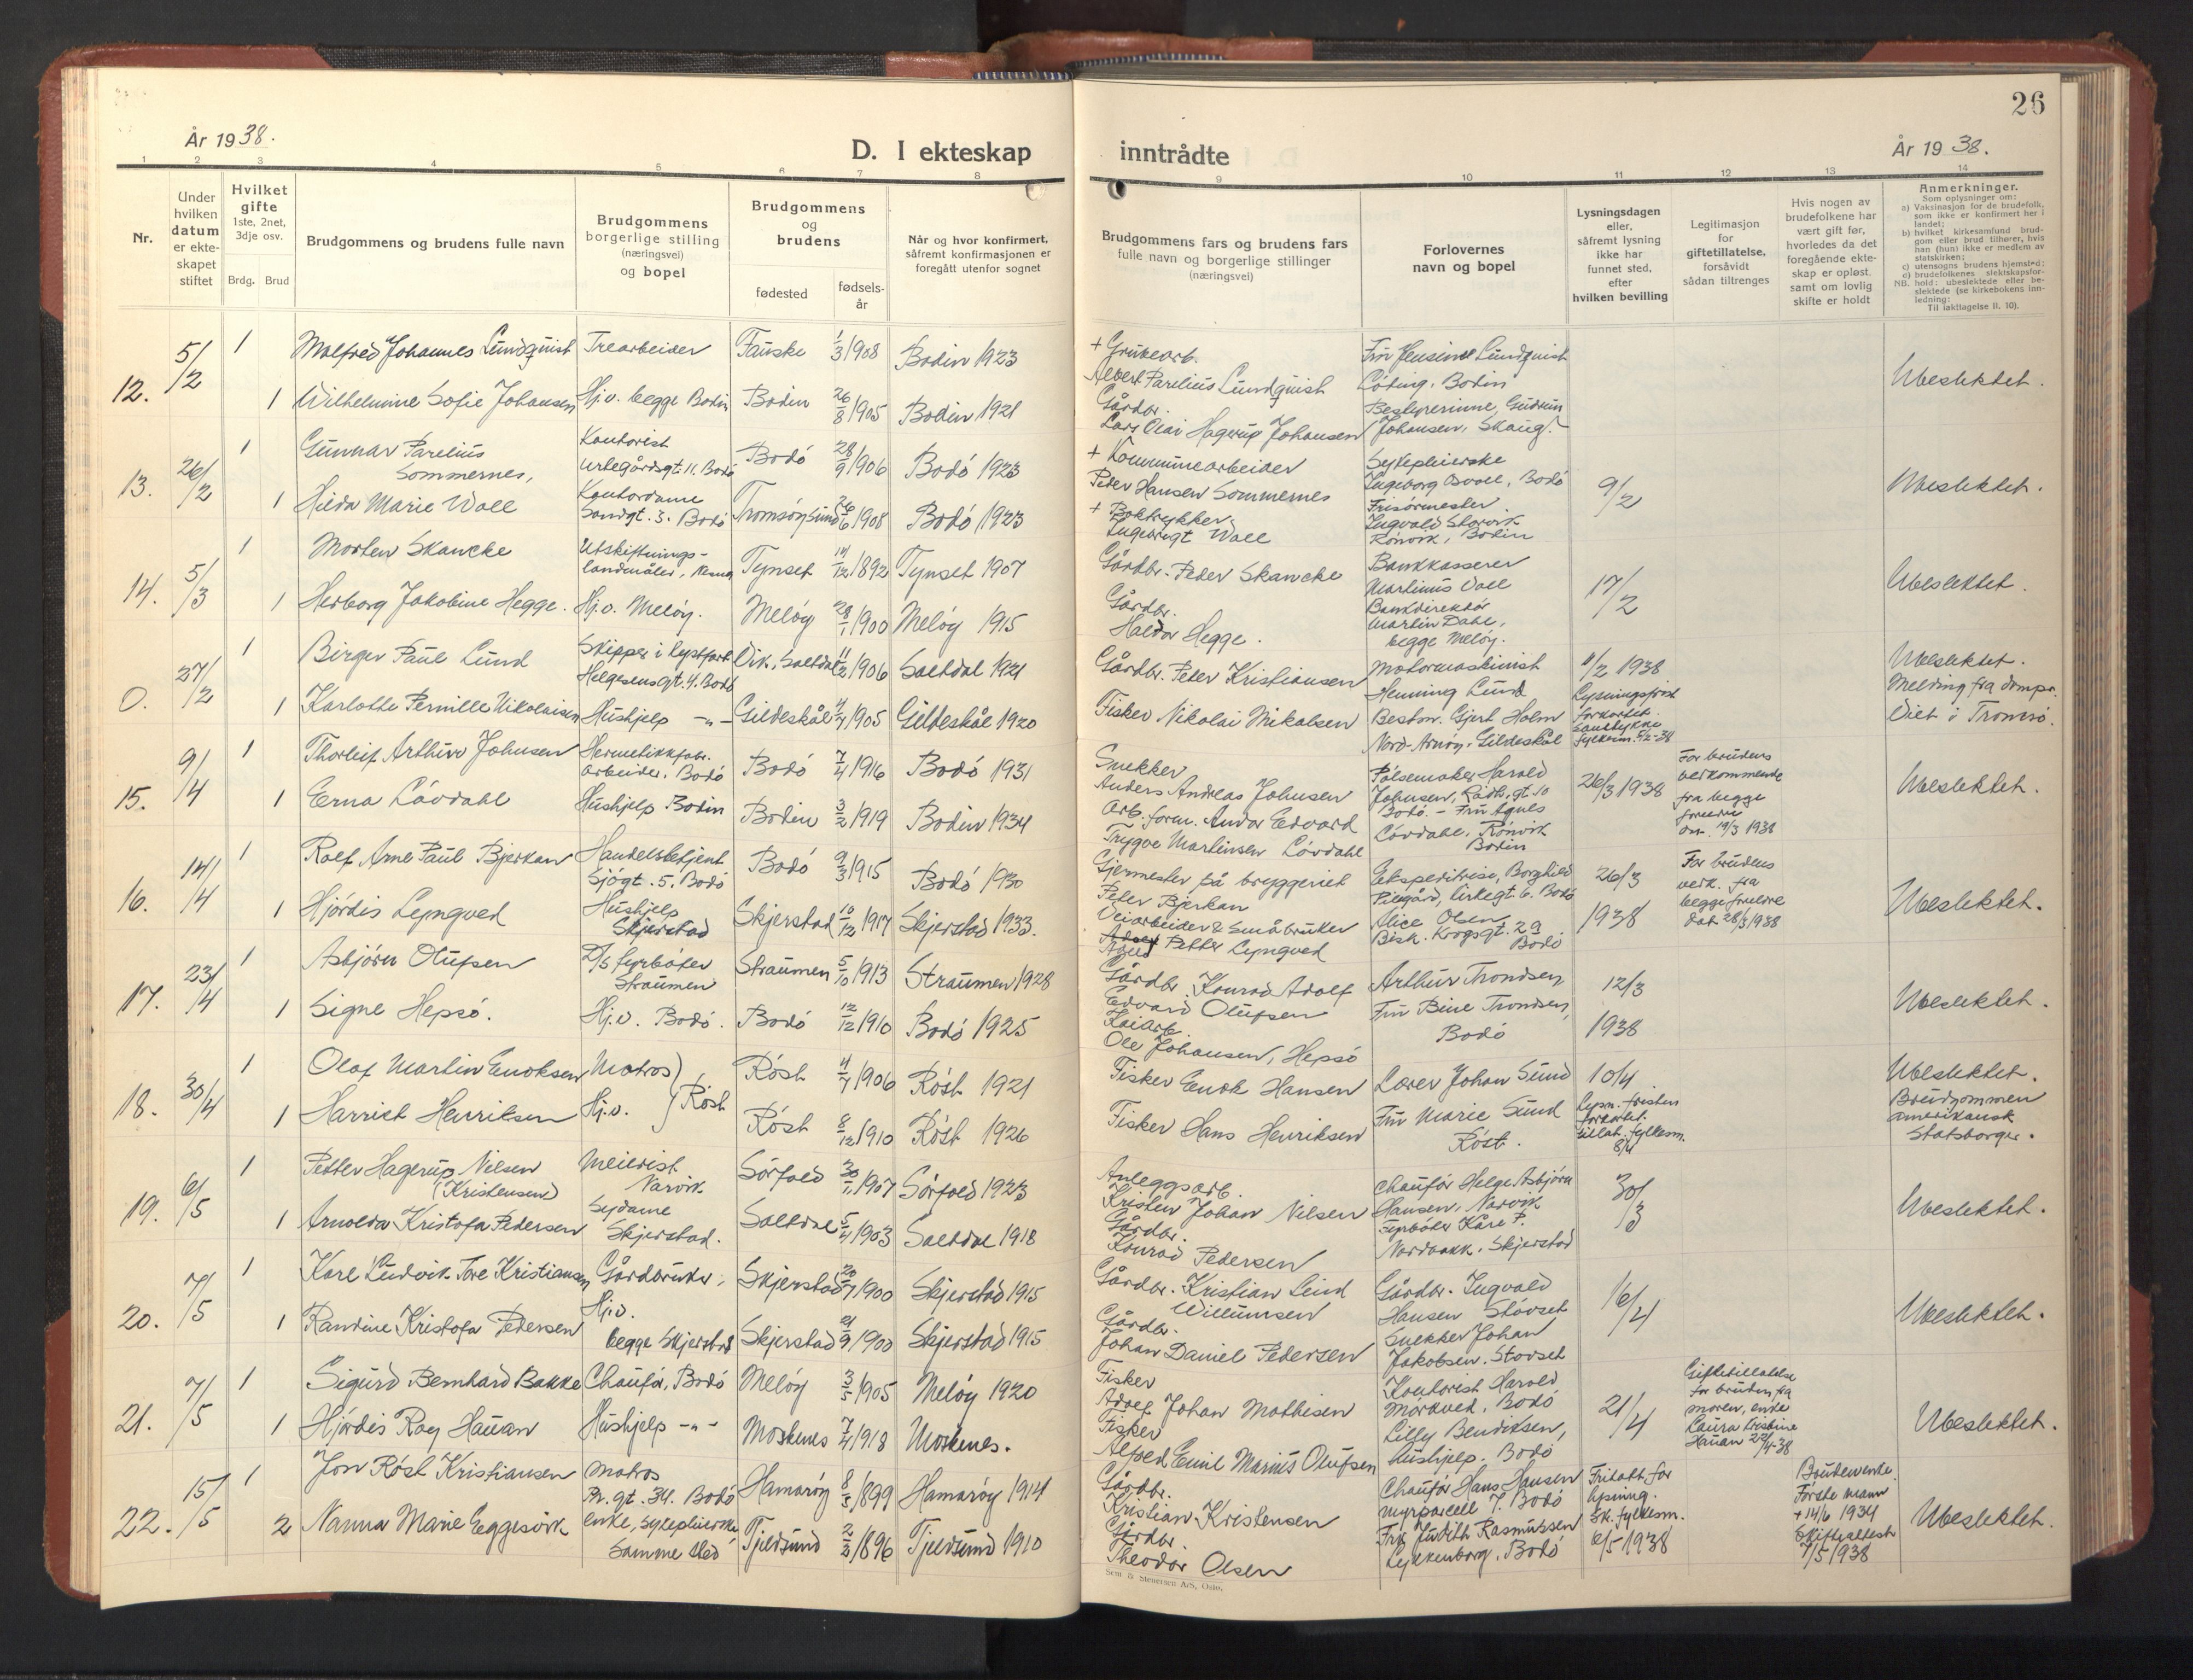 26
År 1938.
D. I ekteskap inntrådte
År 1938.
1 2 3 4 5 6 7 8 9 10 11 12 13 14
Nr.
Under hvilken datum er ekteskapet stiftet
Hvilket gifte
1ste, 2net, 3dje osv.
Brdg. Brud
Brudgommens og brudens fulle navn
Brudgommens borgerlige stilling (næringsvei) og bopel
Brudgommens og brudens
fødested
fødselsår
Når og hvor konfirmert, såfremt konfirmasjonen er foregått utenfor sognet
Brudgommens fars og brudens fars fulle navn og borgerlige stillinger (næringsvei)
Forlovernes navn og bopel
Lysningsdagen eller, såfremt lysning ikke har funnet sted, efter hvilken bevilling
Legitimasjon for giftetillatelse, forsåvidt sådan tiltrenges
Hvis nogen av brudefolkene har vært gift før, hvorledes da det foregående ekteskap er opløst. samt om lovlig skifte er holdt
Anmerkninger.
Som oplysninger om:
a) Vaksinasjon for de brudefolk, som ikke er konfirmert her i landet;
b) hvilket kirkesamfund brudgom eller brud tilhører, hvis han (hun) ikke er medlem av statskirken;
c) utensogns brudens hjemsted;
d) brudefolkenes slektskapsforhold: ubeslektede eller beslektede (se kirkebokens innledning:
NB. Til iakttagelse II. 10).
12. 5/2
1 Malfred Johannes Lundquist Trearbeider Fauske 1/3 1908 Bodin 1923
1 Wilhelmine Sofie Johansen Hj.v. begge Bodin Bodin 26/8 1905 Bodin 1921
+ Grubearb. Albert Parelius Lundquist
Gårdbr. Lars Olai Hagerup Johansen
Fru Jensine Lundquist Löding, Bodin
Bestyrerinne Gudrun Johansen, Skaug.
Ubeslektet.
13. 26/2
1 Gunnar Parelius Sommernes, Kontorist Kirkegårdsgt. 11. Bodö Bodö 28/9 1906 Bodö 1923
1 Hilda Marie Wall Kontordame Sandgt. 3. Bodö Tromsöysund 26/6 1908 Bodö 1923
+ Kommunearbeider Peder Hansen Sommernes
+ Boktrykker Ingebrigt Wall
Sykepleierske Ingeborg Bvoll, Bodö
Frisörmester Ingvald Storvik Rönvik, Bodin
9/2
Ubeslektet.
14. 5/3
1 Morten Skancke Utskiftnings-landmåler, Tynset 14/12 1892 Tynset 1907
1 Herborg Jakobine Hegge. Hj.v. Melöy. Melöy 28/1 1900 Melöy 1915
Gårdbr. Peder Skancke
Gårdbr. Haldor Hegge.
Bankkasserer Martinus Vall
Bankdirektör Martin Dahl, begge Melöy.
17/2
Ubeslektet.
0. 27/2
1 Birger Paul Lund Skipper i kystfart Helgesensgt. 4. Bodö Vik, Saltdal 11/2 1906 Saltdal 1921
1 Karlotte Pernille Nikolaisen Hushjelp -"- Gildeskål 4/7 1905 Gildeskål 1920
Gårdbr. Peter Kristiansen
Fisker Nikolai Mikalsen
Motormaskinist Henning Lund
Bestm. Gjert Holm Nord-Arnöy, Gildeskål
11/2 1938 Lysningsfrist forkortet. Samtykke fylkesm. 5/2-38
Ubeslektet.
Melding fra dompr.
Viet i Tromsö.
15. 9/4
1 Thorleif Arthur Johnsen Hermetikkfabr. arbeider, Bodö Bodö 7/4 1916 Bodö 1931
1 Erna Lövdahl Hushjelp Bodin Bodin 3/2 1919 Bodin 1934
Snekker Anders Andreas Johnsen
Arb. form. Andor Edvard Trygve Martinsen Lövdahl
Pölsemaker Harald Johnsen, Rådh.gt. 10 Bodö. - Fru Agnes Lövdahl, Rönvik Bodin
26/3 1938
For brudens vedkommende fra begge foreldre dat. 19/3 1938
Ubeslektet.
16. 14/4
1 Rolf Arne Paul Bjerkan Handelsbetjent Sjögt. 5. Bodö Bodö 9/3 1915 Bodö 1930
1 Hjördis Lyngved Hushjelp Skjerstad Skjerstad 10/12 1917 Skjerstad 1933.
Gjermester på bryggeriet Peter Bjerkan
Veiarbeider & Småbruker Petter Lyngved
Ekspeditrise, Borghild Pilegård, Kirkegt. 6. Bodö
Alice Olsen Bisk. Krogsgt. 29 Bodö
26/3 1938
For brudens vedk. fra begge foreldre dat 28/3 1938
Ubeslektet.
17. 23/4
1 Asbjörn Olufsen D/S fyrböter Straumen Straumen 5/10 1913 Straumen 1928
1 Signe Hepsö. Hj.v. Bodö. Bodö 12/12 1910 Bodö 1925
Gårdbr. Konrad Adolf Edvard Olufsen
Kaiarb. Ole Johansen, Hepsö
Arthur Trondsen, Fru Bine Trondsen, Bodö
12/3 1938
Ubeslektet.
18. 30/4
1 Olaf Martin Enoksen Matros Röst 4/7 1906 Röst 1921
1 Harriet Henriksen Hj.v. Röst Röst 8/12 1910 Röst 1926
Fisker Enok Hansen
Fisker Hans Henriksen
Lærer Johan Sund
Fru Marie Sund Röst.
10/4 Lysn. fristen forkortet. tillat. fylkesm. 8/4
Ubeslektet.
Brudgommen amerikansk statsborger.
19. 6/5
1 Petter Hagerup Nilsen (Kristensen) Meierist Narvik Sörfold 30/1 1907 Sörfold 1923
1 Arnolda Kristofa Pedersen Sydame Skjerstad. Saltdal 5/4 1903 Saltdal 1918
Anleggsarb. Kristen Johan Nilsen
Gårdbr. Konrad Pedersen
Chauför Helge Asbjörn Hansen, Narvik
Fyrböter Kåre P. Nordvakk, Skjerstad
30/3
Ubeslektet.
20. 7/5
1 Kare Ludvik Tore Kristiansen Gårdbruker, Skjerstad 20/7 1900 Skjerstad 1915
1 Randine Kristofa Pedersen Hj.v. begge Skjerstad Skjerstad 21/9 1900 Skjerstad 1915
Gårdbr. Kristian Lind Willumsen
Gårdbr. Johan Daniel Pedersen
Gårdbr. Ingvald Hansen Stövset
Snekker Johan Jakobsen, Stövset
16/4
Ubeslektet.
21. 7/5
1 Sigurd Bernhard Bakke Chauför, Bodö Melöy 3/5 1905 Melöy 1920
1 Hjördis Roy Hauan Hushjelp -"- Moskenes 7/4 1918 Moskenes.
Fisker Adolf Johan Mathisen
Fisker Alfred Emil Marius Olufsen
Kontorist Harald Mörkved, Bodö
Lilly Bendiksen, hushjelp, Bodö
21/4
Giftetillatelse for bruden fra moren, enke Laura Kristine Hauan 22/4-38
Ubeslektet.
22. 15/5
1 Jon Röst Kristiansen Matros Pr. gt. 34. Bodö Hamaröy 8/5 1899 Hamaröy 1914
2 Nanna Marie Eggesvik enke, sykepleierske samme sted Tjeldsund 2/2 1896 Tjeldsund 1910
Gårdbr. Kristian Kristensen
Gårdbr. Theodor Olsen
Chauför Hans Hansen Myrparcell 7. Bodö
Frk Judith Rasmussen Lykkenborg, Bodö
Fritatt for lysning. Sk. fylkesm. 6/5 1938
Bruden enke. Förste mann + 14/6 1934 Skifteattest 7/5 1938
Ubeslektet.
Sem & Stenersen A/S, Oslo.